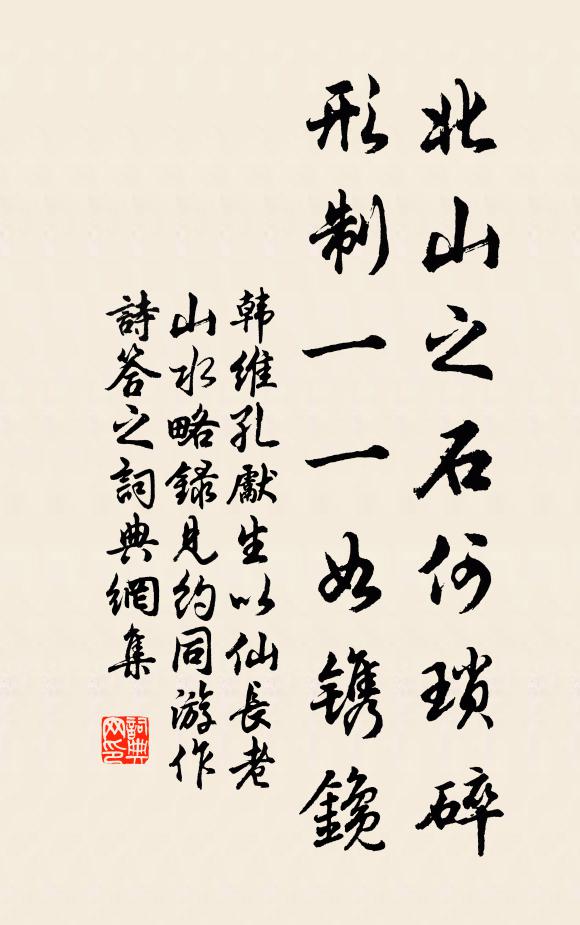 北山之石何瑣碎
形制一一如鐫鑱
韩維孔獻生以仙長老
山水略録見約同游作
詩答之詞典網集
詞典网印